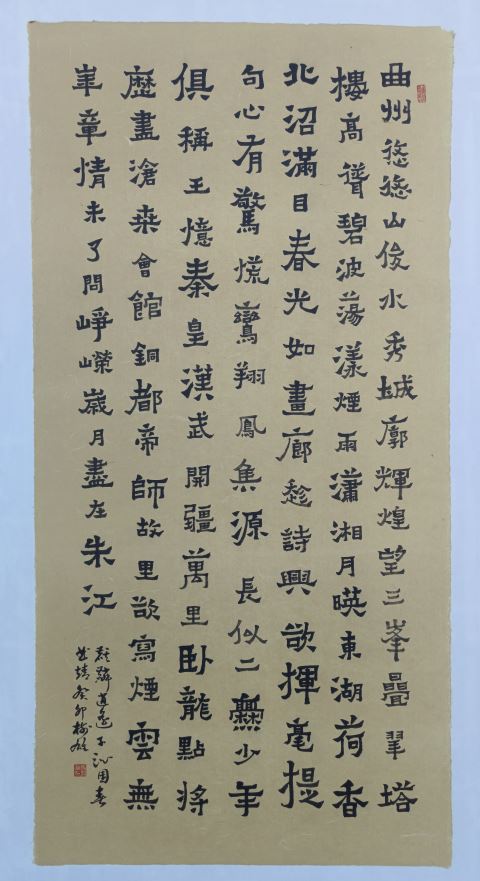 曲州悠悠山俊水秀城廓輝煌望三峯疊翠塔
樓高聳碧波蕩漾煙雨瀟湘月暎東湖荷香
北沼滿目春光如畫廊趁詩興欲揮毫提
句心有驚慌鸞翔鳳集源長似二爨少年
俱稱王憶秦皇漢武開疆萬里卧龍點將
歷盡滄桑會館銅都帝師故里欲寫煙雲無
華章情未了問崢嶸歲月盡在朱江
沁園春
曲靖癸卯